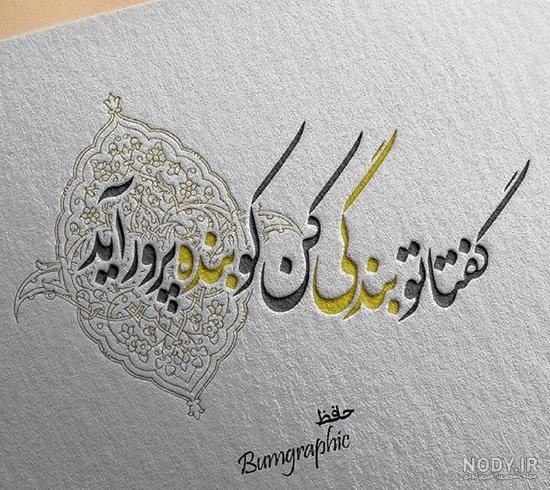 گفتا تو بندگی کن کو بنده پرور آید
حافظ
Bumgraphic
NODY.IR